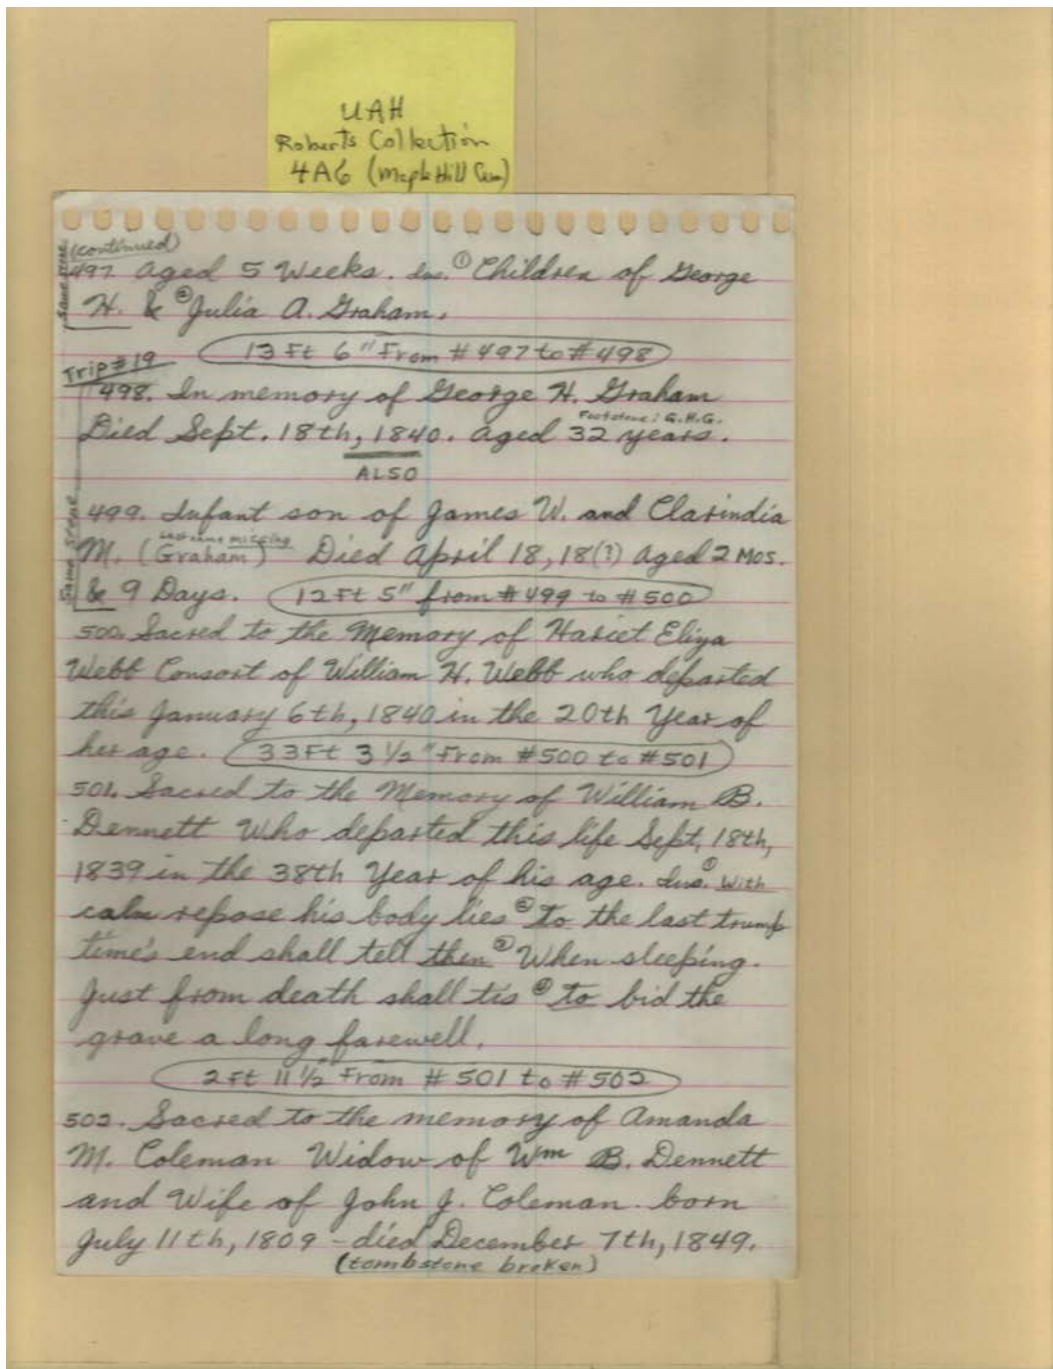 UAH
Roberts Collection
4A6 (Maple Hill Cem)
(continued)
Same Stone
497 Aged 5 Weeks. Ins. ① Children of George
H. & ② Julia A. Graham.
13 Ft 6" From #497 to #498
Trip #19
498. In memory of George H. Graham
Footstone: G.H.G.
Died Sept. 18th, 1840. Aged 32 years.
ALSO
Same Stone
499. Infant son of James W. and Clarindia
Last name missing
M. (Graham) Died April 18, 18(?) Aged 2 Mos.
& 9 Days. 12 Ft 5" from #499 to #500
500. Sacred to the Memory of Hariet Eliza
Webb Consort of William H. Webb who departed
this January 6th, 1840 in the 20th Year of
her age. 33 Ft 3 1/2" From #500 to #501
501. Sacred to the Memory of William B.
Dennett Who departed this life Sept, 18th,
1839 in the 38th Year of his age. Ins. ① With
calm repose his body lies ② To the last trump
time's end shall tell then ③ When sleeping.
Just from death shall tis ④ To bid the
grave a long farewell.
2 Ft 11 1/2 From #501 to #502
502. Sacred to the memory of Amanda
M. Coleman Widow of Wm B. Dennett
and Wife of John J. Coleman born
July 11th, 1809 - died December 7th, 1849.
(tombstone broken)